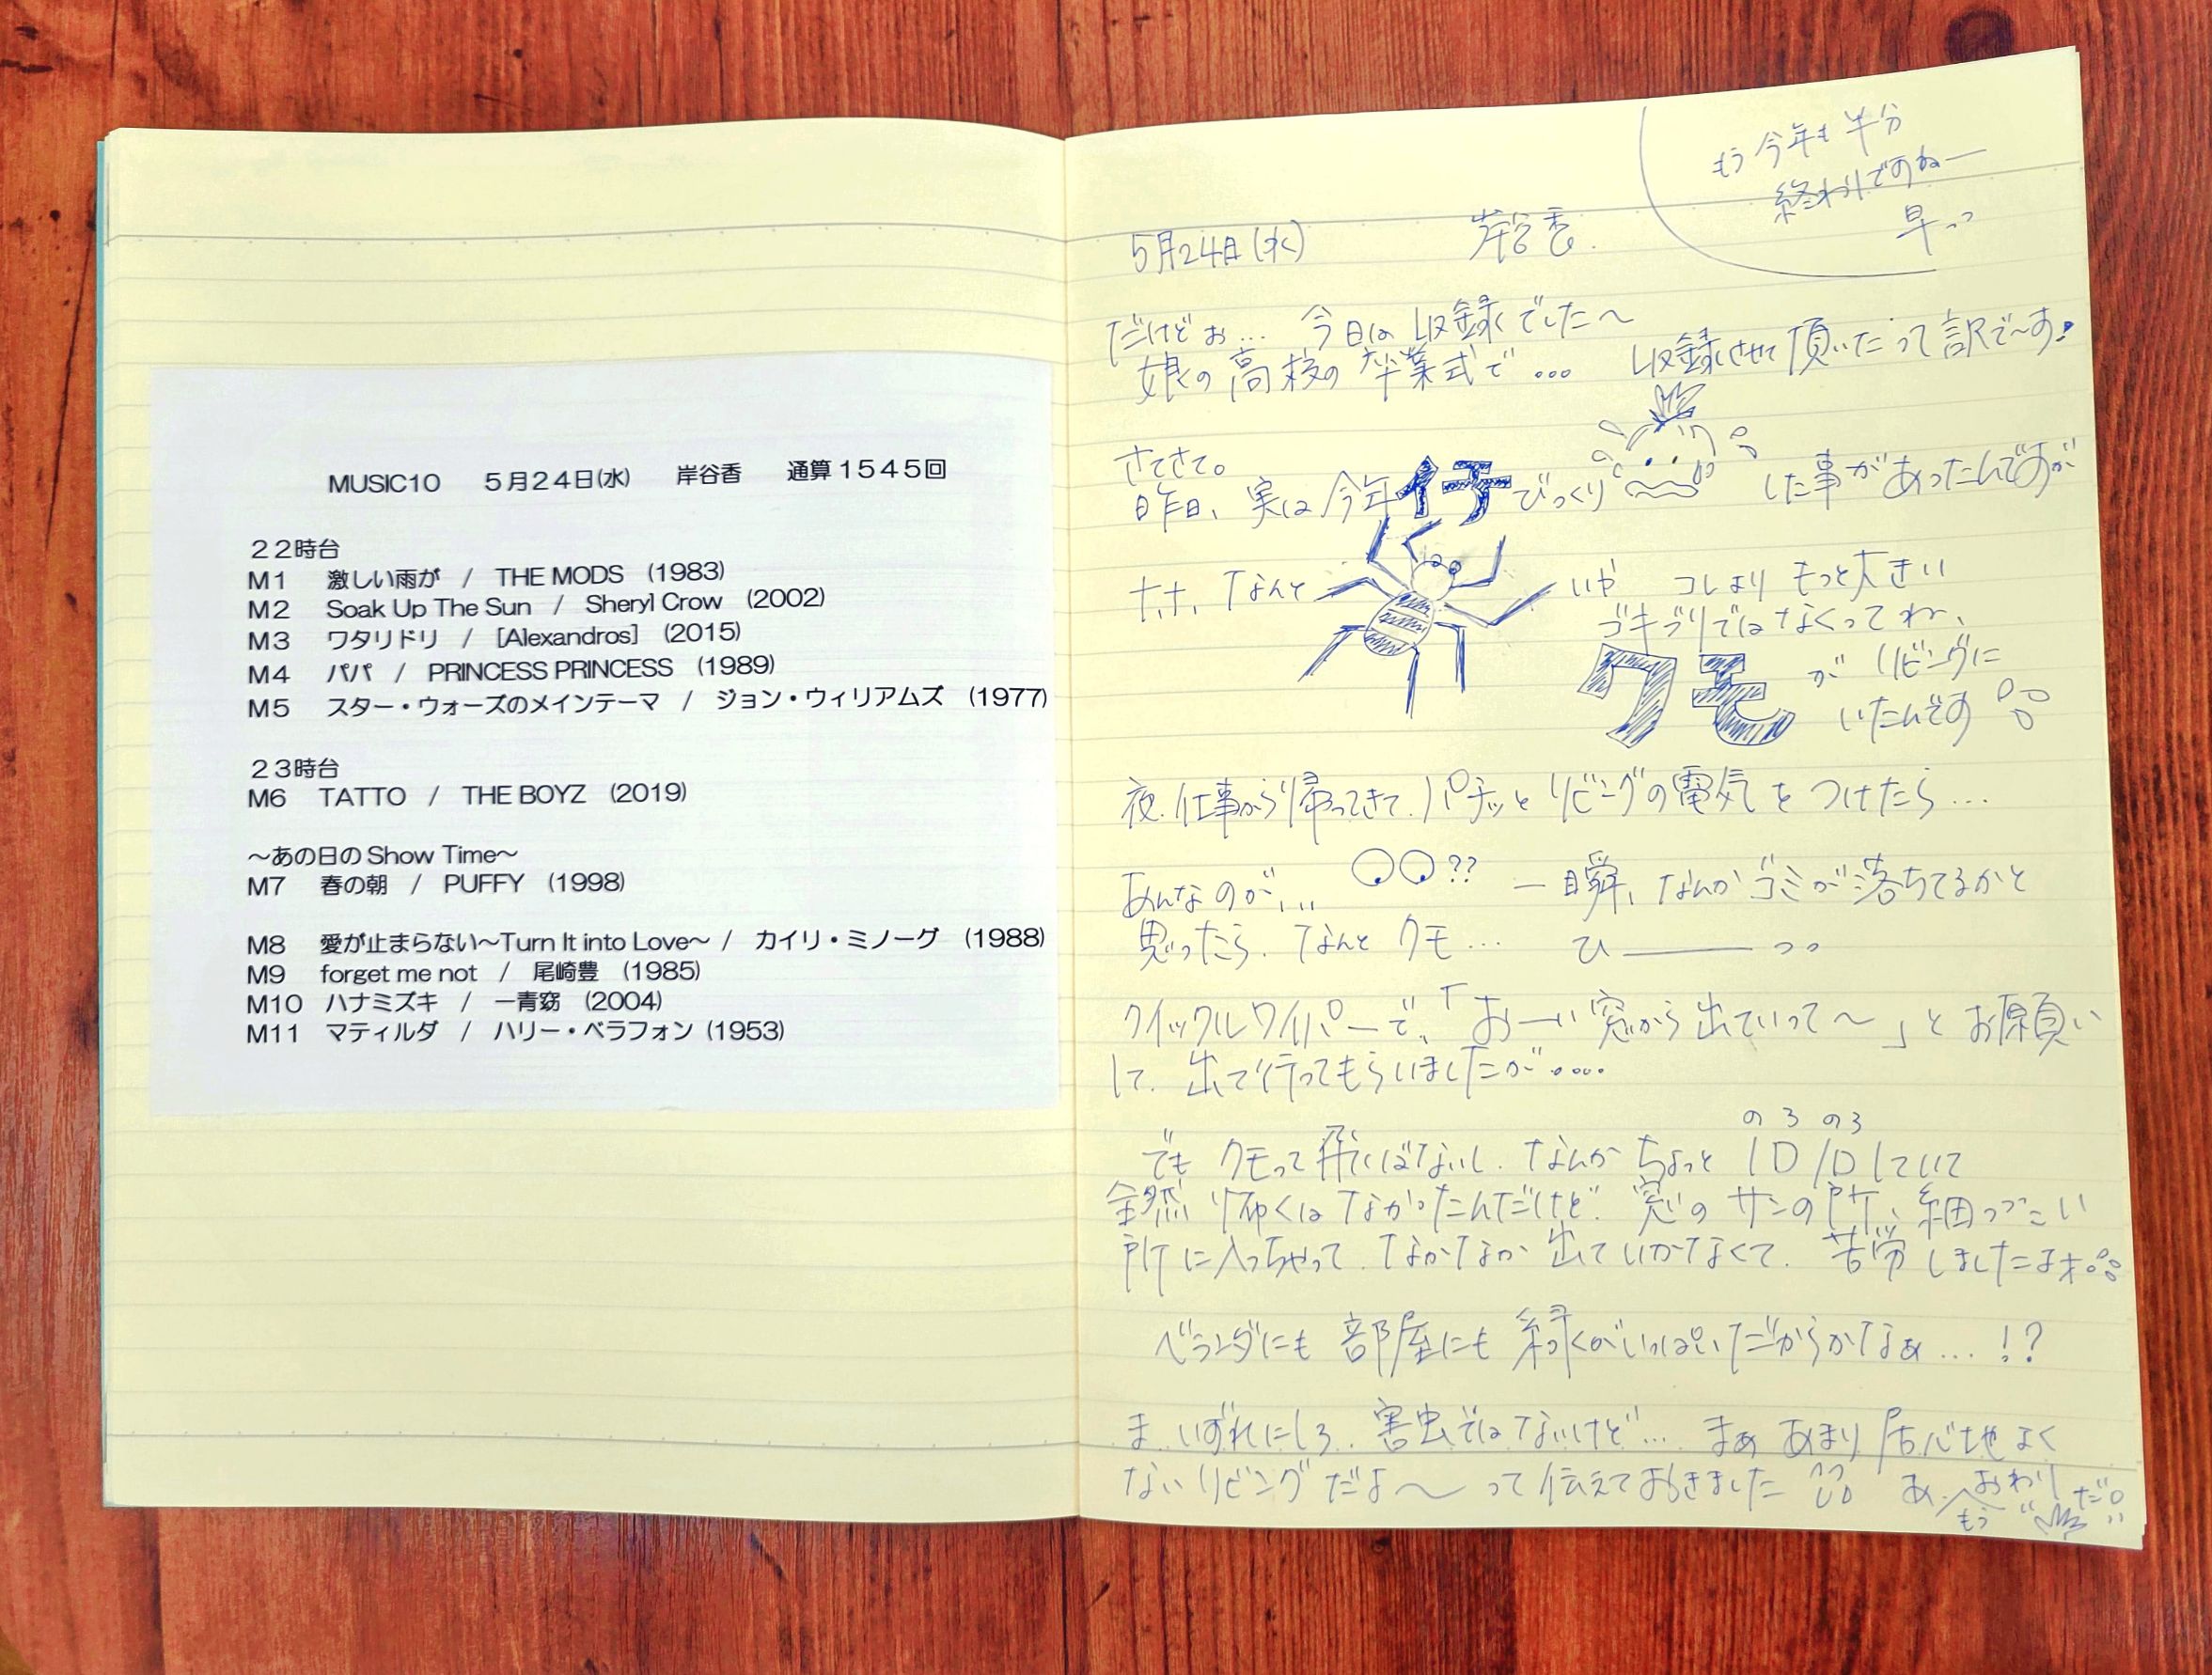 MUSIC10 5月24日(水) 岸谷香 通算1545回
22時台
M1 激しい雨が / THE MODS (1983)
M2 Soak Up The Sun / Sheryl Crow (2002)
M3 ワタリドリ / [Alexandros] (2015)
M4 パパ / PRINCESS PRINCESS (1989)
M5 スター・ウォーズのメインテーマ / ジョン・ウィリアムズ (1977)
23時台
M6 TATTO / THE BOYZ (2019)
～あの日の Show Time～
M7 春の朝 / PUFFY (1998)
M8 愛が止まらない～Turn It into Love～ / カイリ・ミノーグ (1988)
M9 forget me not / 尾崎豊 (1985)
M10 ハナミズキ / 一青窈 (2004)
M11 マティルダ / ハリー・ベラフォン (1953)
もう今年も半分
終わりですねー
早っっ
5月24日(水) 岸谷香.
だけどぉ… 今日は収録でした〜
娘の高校の卒業式で… 収録させて頂いたって訳で〜す!
さてさて。
昨日、実は今年イチびっくりした事があったんですが
ナ、ナ、なんと いや コレよりもっと大きい
ゴキブリではなくってね、
クモがリビングに
いたんです
夜、仕事から帰ってきて、パチッとリビングの電気をつけたら…
あんなのが… ?? 一瞬、なんかゴミが落ちてるかと
思ったら、なんとクモ… ひ———っっ
クイックルワイパーで、「おーい窓から出ていって〜」とお願い
して、出て行ってもらいましたが....
でもクモって飛ばないし、なんかちょっと
のろのろ
ノロノロしていて
全然怖くはなかったんだけど、窓のサンの所、細っっこい
所に入っちゃって、なかなか出ていかなくて、苦労しましたよォ
ベランダにも部屋にも緑がいっぱいだからかなぁ…!?
ま、いずれにしろ、害虫ではないけど… まぁあまり居心地よく
ないリビングだよ〜って伝えておきました あ、もうおわりだ